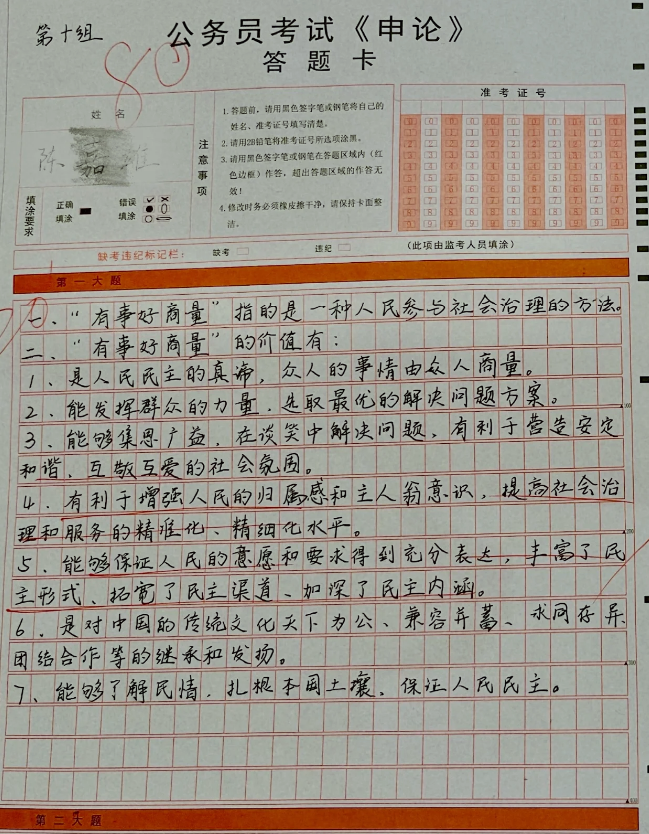 第十组
公务员考试《申论》
80
答题卡
姓名
陈嘉维
填涂要求
正确填涂
错误填涂
注意事项
1.答题前，请用黑色签字笔或钢笔将自己的
姓名、准考证号填写清楚。
2.请用2B铅笔将准考证号所选项涂黑。
3.请用黑色签字笔或钢笔在答题区域内（红
色边框）作答，超出答题区域的作答无
效！
4.修改时务必须橡皮擦干净，请保持卡面整
洁。
准考证号
缺考违纪标记栏：
缺考
违纪
（此项由监考人员填涂）
第一大题
一、“有事好商量”指的是一种人民参与社会治理的方法。
二、“有事好商量”的价值有：
1、是人民民主的真谛，众人的事情由众人商量。
2、能发挥群众的力量，选取最优的解决问题方案。
3、能够集思广益，在谈笑中解决问题，有利于营造安定
和谐、互敬互爱的社会氛围。
4、有利于增强人民的归属感和主人翁意识，提高社会治
理和服务的精准化、精细化水平。
5、能够保证人民的意愿和要求得到充分表达，丰富了民
主形式、拓宽了民主渠道、加深了民主内涵。
6、是对中国的传统文化天下为公、兼容并蓄、求同存异
团结合作等的继承和发扬。
7、能够了解民情，扎根本国土壤，保证人民民主。
第二大题